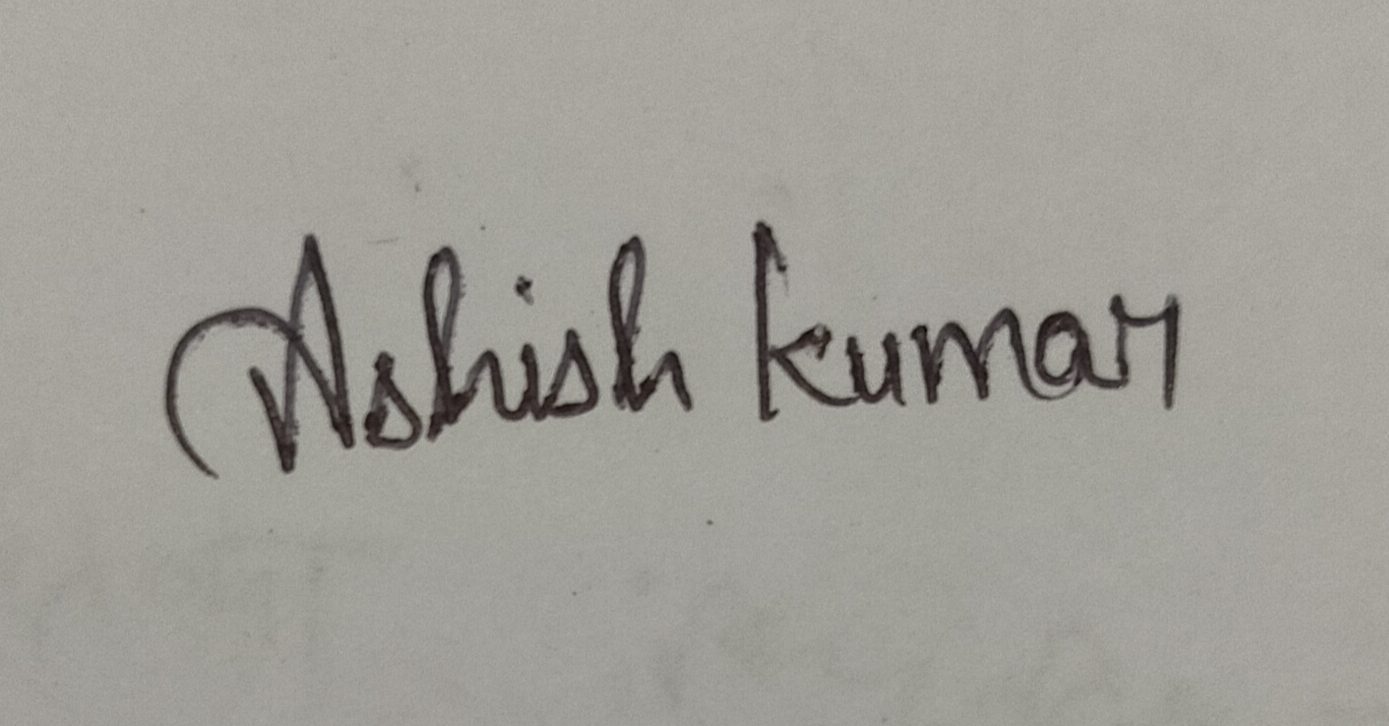 Ashish kumar